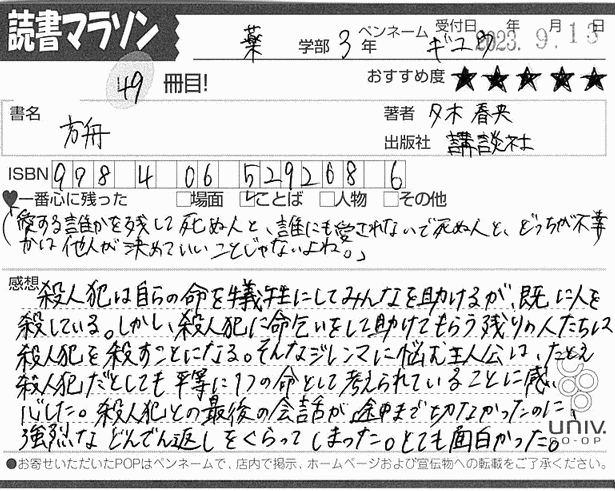 読書マラソン
薬 学部 3 年 ペンネーム ギユウ 受付日 年 月 日
2023.9.13
49 冊目! おすすめ度 ★★★★★
書名 方舟
著者 夕木春央
出版社 講談社
ISBN 978 4 06 529268 6
♥一番心に残った □場面 ☑ことば □人物 □その他
「愛する誰かを残して死ぬ人と、誰にも愛されないで死ぬ人と、どっちが不幸
かは他人が決めていいことじゃないよね。」
感想 殺人犯は自らの命を犠牲にしてみんなを助けるが、既に人を
殺している。しかし、殺人犯に命乞いをして助けてもらう残りの人たちは
殺人犯を殺すことになる。そんなジレンマに悩む主人公は、たとえ
殺人犯だとしても平等に1つの命として考えられていることに感
心した。殺人犯との最後の会話が途中まで切なかったのに、
強烈などんでん返しをくらってしまった。とても面白かった。
univ.
CO-OP
●お寄せいただいたPOPはペンネームで、店内で掲示、ホームページおよび宣伝物への転載をご了承ください。